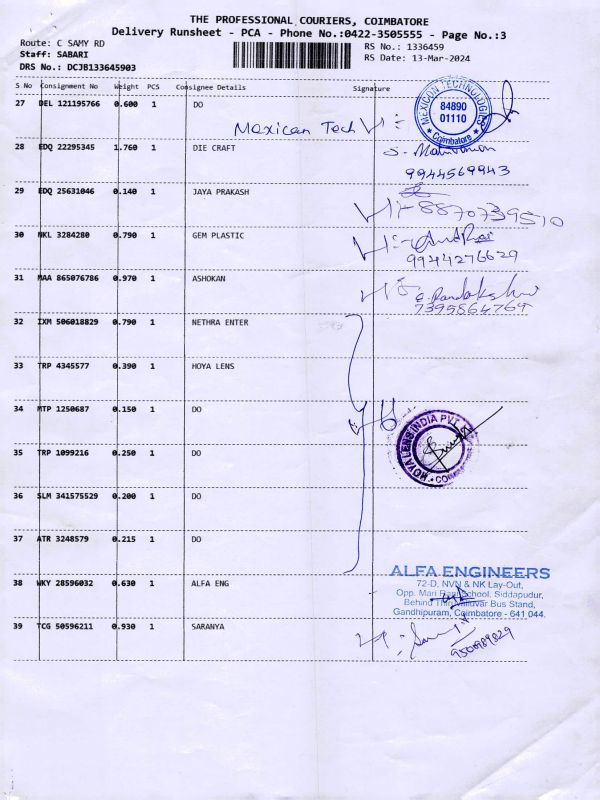 THE PROFESSIONAL COURIERS, COIMBATORE
Delivery Runsheet - PCA - Phone No.:0422-3505555 - Page No.:3
Route: C SAMY RD
RS No.: 1336459
Staff: SABARI
RS Date: 13-Mar-2024
DRS No.: DCJB133645903
S No Consignment No Weight PCS Consignee Details Signature
27 DEL 121195766 0.600 1 DO
Mexican Tech
MEXICON TECHNOLOGIES
84890
01110
Coimbatore
28 EDQ 22295345 1.760 1 DIE CRAFT
9944569943
29 EDQ 25631046 0.140 1 JAYA PRAKASH
8870739510
30 NKL 3284280 0.790 1 GEM PLASTIC
9944276629
31 MAA 865076786 0.970 1 ASHOKAN
7395864769
32 IXM 506018829 0.790 1 NETHRA ENTER
33 TRP 4345577 0.390 1 HOYA LENS
34 MTP 1250687 0.150 1 DO
HOYA LENS INDIA PVT
35 TRP 1099216 0.250 1 DO
36 SLM 341575529 0.200 1 DO
37 ATR 3248579 0.215 1 DO
ALFA ENGINEERS
38 WKY 28596032 0.630 1 ALFA ENG
72-D, NVN & NK Lay-Out,
Opp. Mari Rani School, Siddapudur,
Behind Thiruvalluvar Bus Stand,
Gandhipuram, Coimbatore - 641 044.
39 TCG 50596211 0.930 1 SARANYA
9500989829